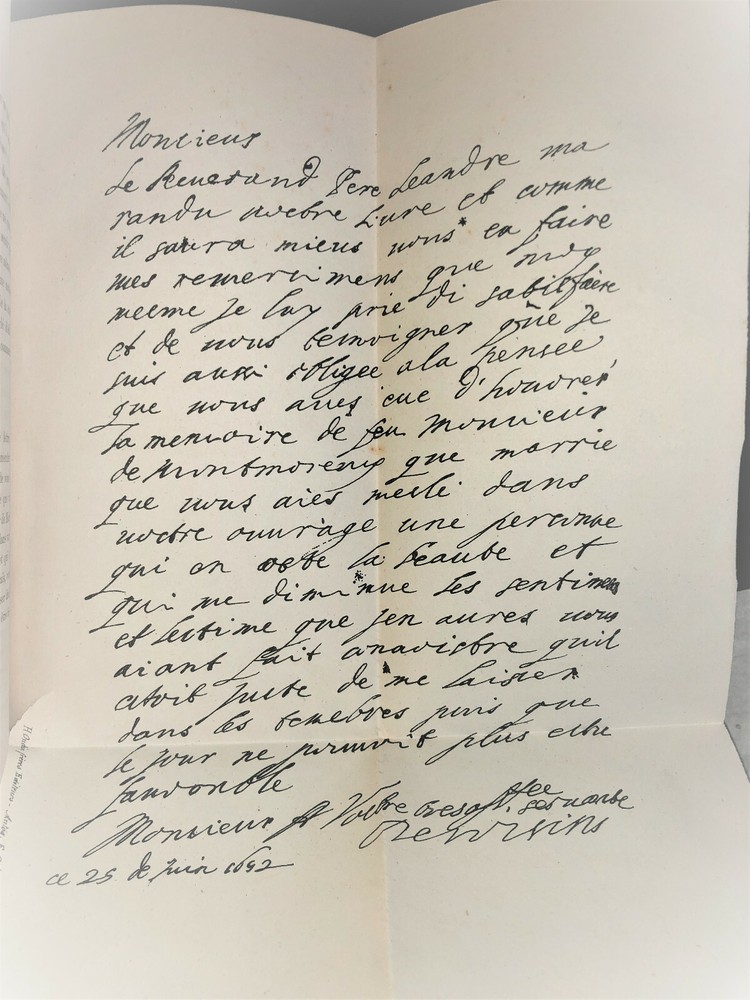 Monsieur
Le Reuerand Pere Leandre ma
randu vostre Liure et comme
il saura mieus vous en faire
mes remercimens que moy
mesme Je luy prie di satisfaire
et de vous temoigner que Je
suis aussi obligee a la pensee
que vous aues eue d'honorer
la memoire de feu Monsieur
de Montmorency que marrie
que vous aies meslé dans
vostre ouurage une personne
qui en oste la beaute et
qui me diminue les sentimens
et lestime que Jen aures vous
aiant fait connoistre quil
estoit juste de me laisser
dans les tenebres puis que
le jour ne pouuoit plus estre
fauorable
Monsieur Votre tres aff.ee seruante
Desursins
ce 25 de Juin 1652